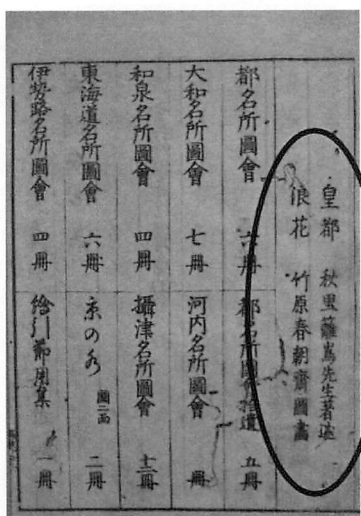 皇都 秋里籬嶌先生著述
浪花 竹原春朝齋圖畫
都名所圖會 六冊
都名所圖會拾遺 五冊
大和名所圖會 七冊
河内名所圖會 冊
和泉名所圖會 四冊
攝津名所圖會 十二冊
東海道名所圖會 六冊
京の水 圖二面 二冊
伊勢路名所圖會 四冊
繪引節用集 一冊